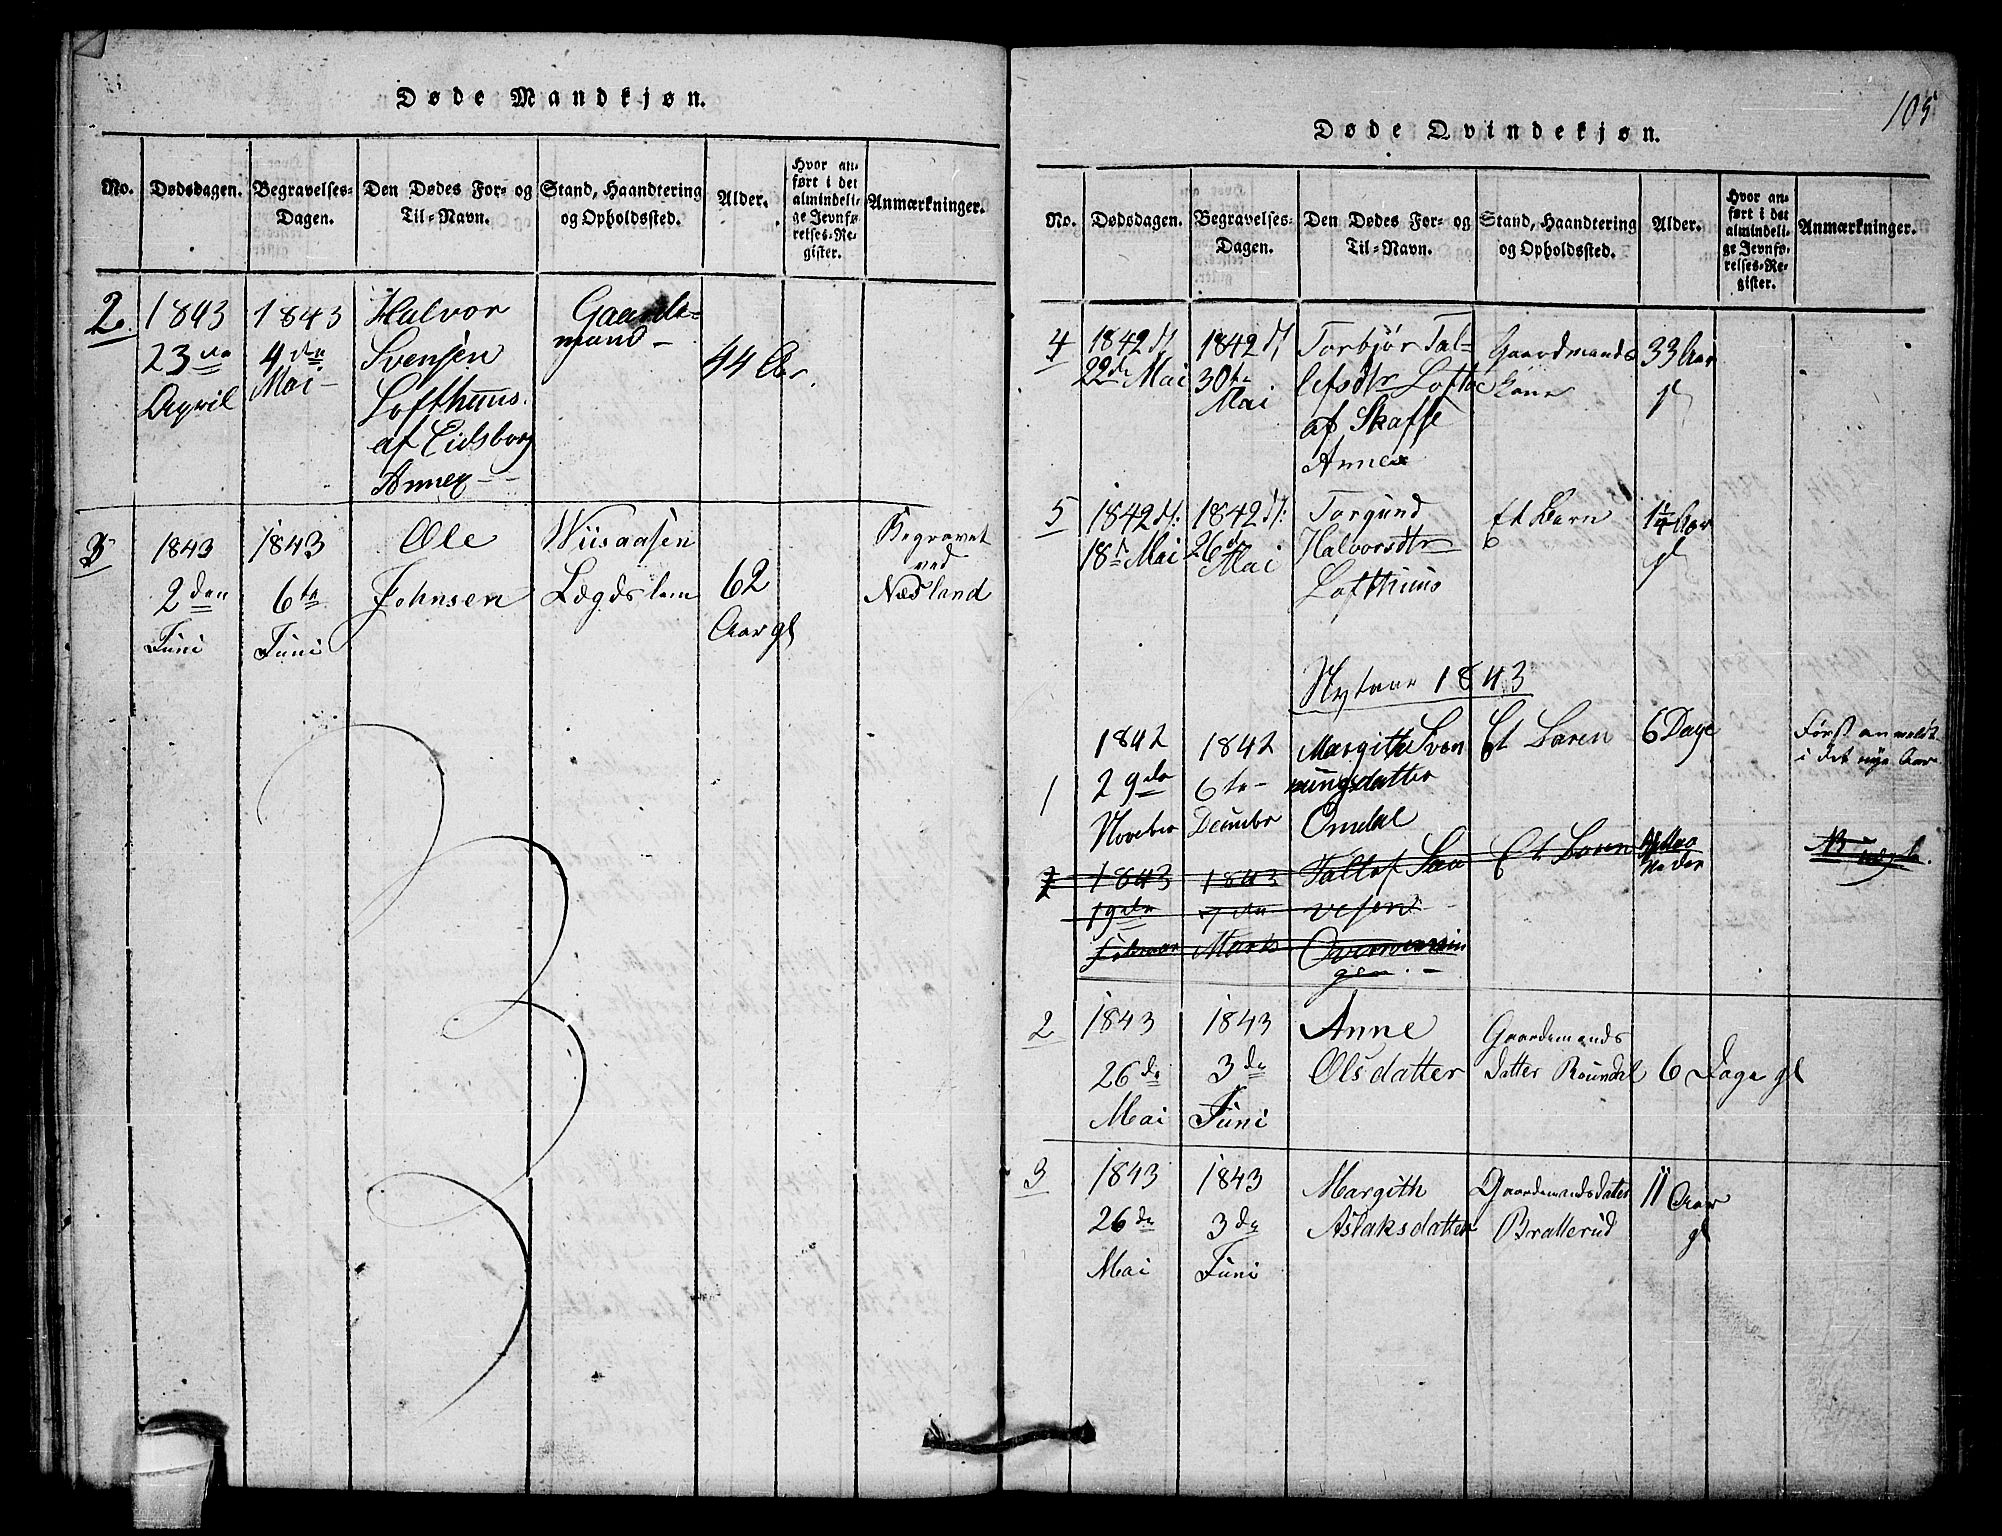 Døde Mandkjøn.
No. Dødsdagen. Begravelses-Dagen. Den Dødes For- og Til-Navn. Stand, Haandtering og Opholdssted. Alder. Hvor anført i det almindelige Jevnførelses-Register. Anmærkninger.
2. 1843 1843 Halvor Gaarde=
23de 4de Svensen mand
April Mai Lofthuus. 44 Aar.
af Eidsborg
Annex
3 1843 1843 Ole Wiisaasen Begravet
2den 6te Johnsen Lægdslem 62 ved
Juni Juni Aar gl Næsland
105
Døde Qvindekjøn.
No. Dødsdagen. Begravelses-Dagen. Den Dødes For- og Til-Navn. Stand, Haandtering og Opholdssted. Alder. Hvor anført i det almindelige Jevnførelses-Register. Anmærkninger.
4 1842 d. 1842 d. Torbjør Tal= Gaardmands 33 Aar
22de Mai 30te lefsdtr Loftu Kone gl
Mai af Skafse
Annex
5 1842 d: 1842 d: Torgund Et Barn 1/4 Aar
18d Mai 26d Halvorsdtr gl
Mai Lofthuus
Nytaar 1843
1842 1842 Margith Sven Et Baren 6 Dage Først anmeldt
1 29de 6te ningsdatter i det nye Aar
Novebr Decembr Omdal
2 1843 1843 Tallef Saa Et Baren
19de 7de vesen
Februar Marts
gen
2 1843 1843 Anne Gaardemands
26de 3de Olsdatter datter Roundal 6 Dage gl
Mai Juni
3 1843 1843 Margith Gaardemandsdatter 11 Aar
26de 3de Aslaksdatter Bratterud gl
Mai Juni